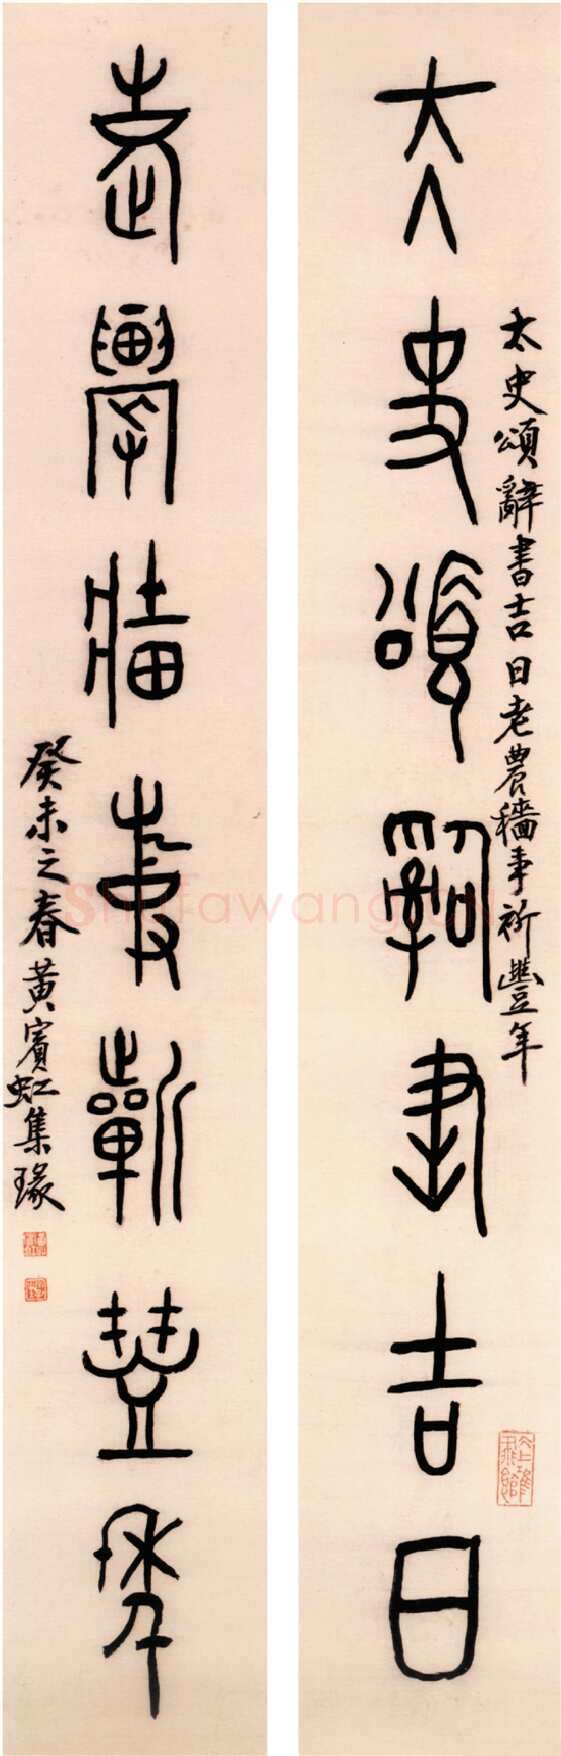 太史頌辭書吉日老農穡事祈豐年
大史頌辭書吉日
老農穡事祈豐年
癸未之春黃賓虹集瑑
Shufawang.cn